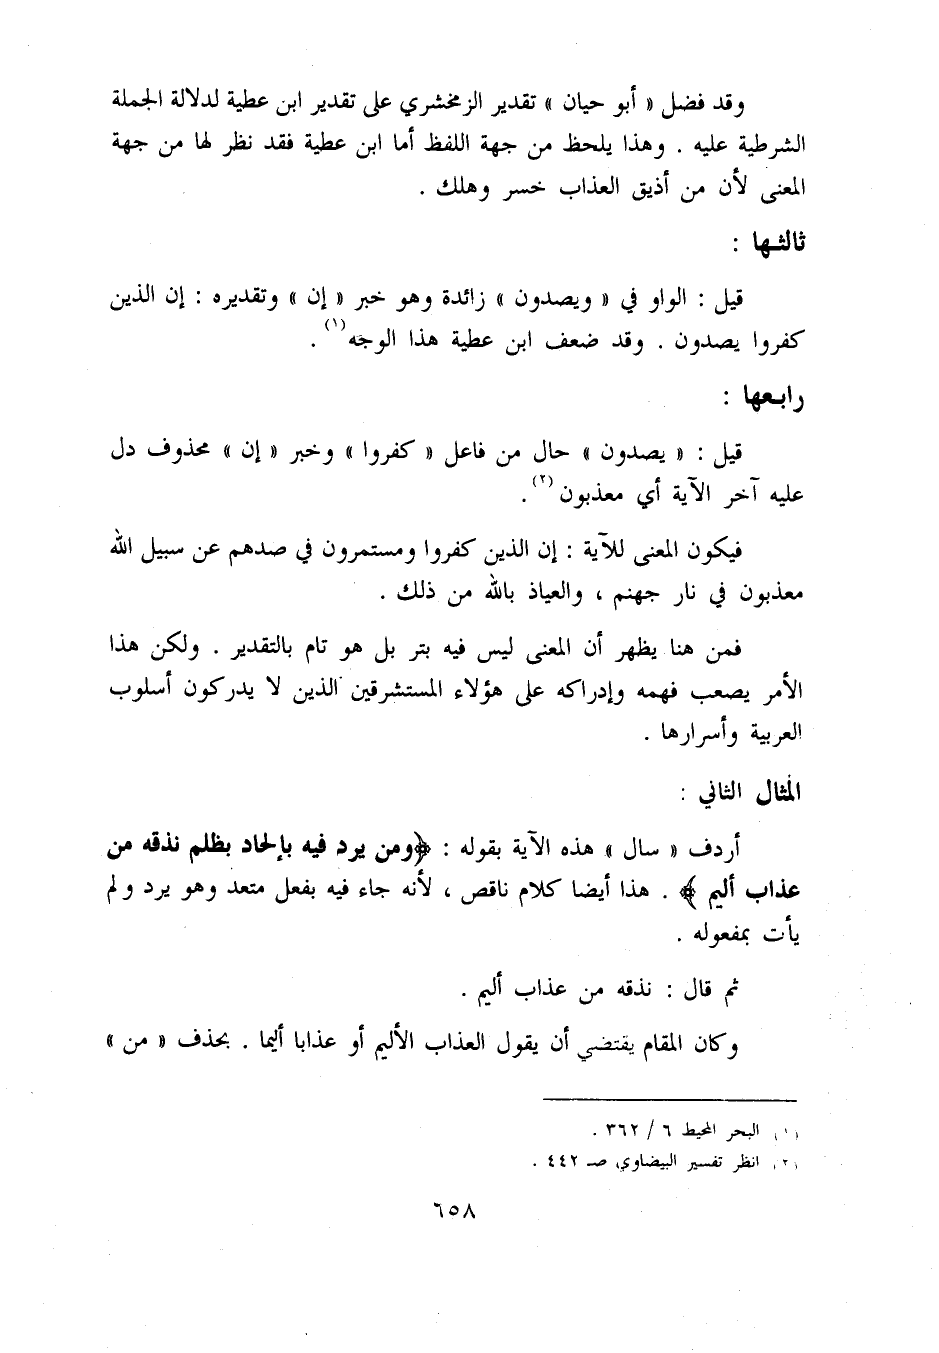 وقد فضل « أبو حيان » تقدير الزمخشري على تقدير ابن عطية لدلالة الجملة
الشرطية عليه . وهذا يلحظ من جهة اللفظ أما ابن عطية فقد نظر لها من جهة
المعنى لأن من أذيق العذاب خسر وهلك .
ثالثها :
قيل : الواو في « ويصدون » زائدة وهو خبر « إن » وتقديره : إن الذين
كفروا يصدون . وقد ضعف ابن عطية هذا الوجه(١) .
رابعها :
قيل : « يصدون » حال من فاعل « كفروا » وخبر « إن » محذوف دل
عليه آخر الآية أي معذبون(٢) .
فيكون المعنى للآية : إن الذين كفروا ومستمرون في صدهم عن سبيل الله
معذبون في نار جهنم ، والعياذ بالله من ذلك .
فمن هنا يظهر أن المعنى ليس فيه بتر بل هو تام بالتقدير . ولكن هذا
الأمر يصعب فهمه وإدراكه على هؤلاء المستشرقين الذين لا يدركون أسلوب
العربية وأسرارها .
المثال الثاني :
أردف « سال » هذه الآية بقوله : ﴿ومن يرد فيه بإلحاد بظلم نذقه من
عذاب أليم ﴾ . هذا أيضا كلام ناقص ، لأنه جاء فيه بفعل متعد وهو يرد ولم
يأت بمفعوله .
ثم قال : نذقه من عذاب أليم .
وكان المقام يقتضي أن يقول العذاب الأليم أو عذابا أليما . بحذف « من »
(١) البحر المحيط ٦ / ٣٦٢ .
(٢) انظر تفسير البيضاوي صـ ٤٤٢ .
٦٥٨